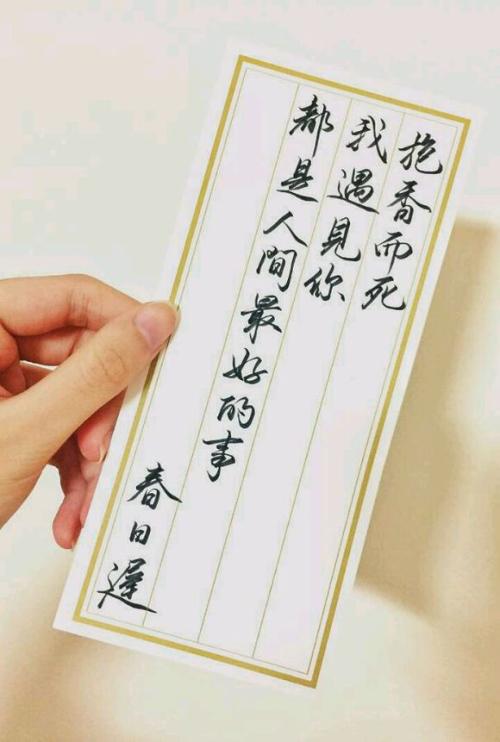 抱香而死
我遇見你
都是人間最好的事
春日遲